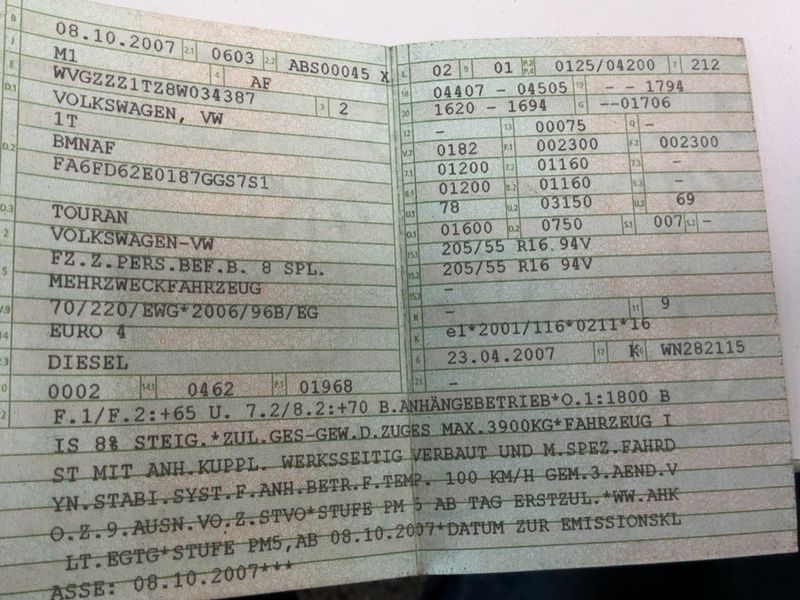 B 08.10.2007 2.1 0603 2.2 ABS00045 X
J M1 4 AF
E WVGZZZ1TZ8W034387 3 2
D.1 VOLKSWAGEN, VW
1T
D.2 BMNAF
FA6FD62E0187GGS7S1
D.3 TOURAN
2 VOLKSWAGEN-VW
5 FZ.Z.PERS.BEF.B. 8 SPL.
MEHRZWECKFAHRZEUG
V.9 70/220/EWG*2006/96B/EG
14 EURO 4
P.3 DIESEL
10 0002 14.1 0462 P.1 01968
L 02 9 01 P.2 P.4 0125/04200 T 212
18 04407 - 04505 19 - - 1794
20 1620 - 1694 G --01706
12 - 13 00075 Q -
V.7 0182 F.1 002300 F.2 002300
7.1 01200 7.2 01160 7.3 -
8.1 01200 8.2 01160 8.3 -
U.1 78 U.2 03150 U.3 69
O.1 01600 O.2 0750 S.1 007 S.2 -
15.1 205/55 R16 94V
15.2 205/55 R16 94V
15.3 -
R - 11 9
K e1*2001/116*0211*16
6 23.04.2007 17 K 16 WN282115
21 -
F.1/F.2:+65 U. 7.2/8.2:+70 B.ANHÄNGEBETRIEB*O.1:1800 B
IS 8% STEIG.*ZUL.GES-GEW.D.ZUGES MAX.3900KG*FAHRZEUG I
ST MIT ANH.KUPPL. WERKSSEITIG VERBAUT UND M.SPEZ.FAHRD
YN.STABI.SYST.F.ANH.BETR.F.TEMP. 100 KM/H GEM.3.AEND.V
O.Z.9.AUSN.VO.Z.STVO*STUFE PM 5 AB TAG ERSTZUL.*WW.AHK
LT.EGTG*STUFE PM5,AB 08.10.2007*DATUM ZUR EMISSIONSKL
ASSE: 08.10.2007***